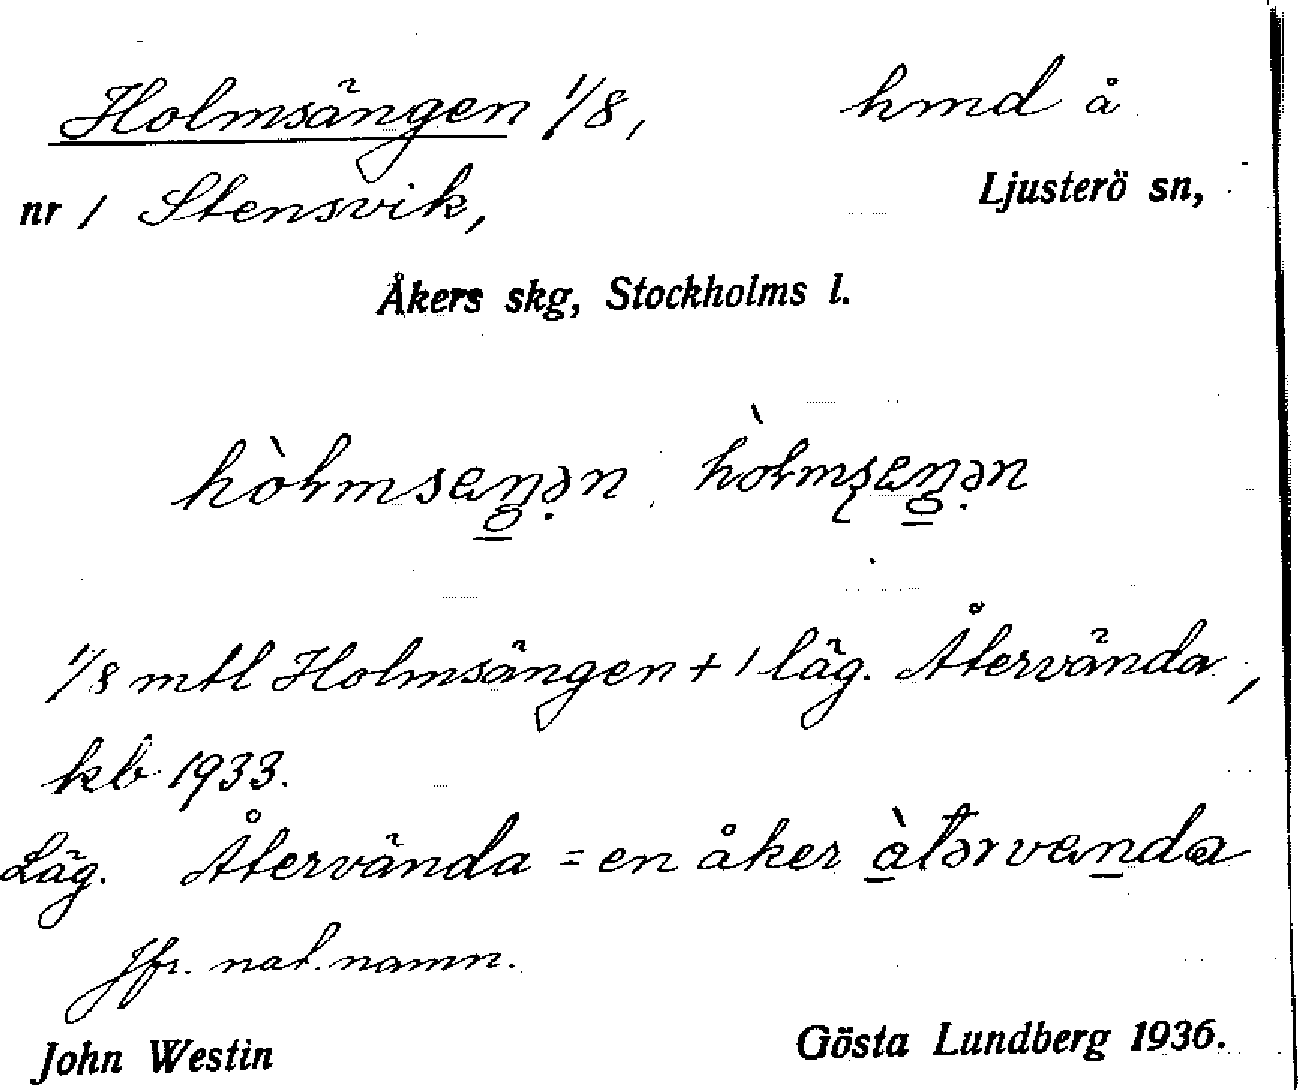 Holmsängen 1/8, hmd å
nr 1 Stensvik, Ljusterö sn,
Åkers skg, Stockholms l.
1/8 mtl Holmsängen + 1 läg. Återvända,
kb 1933.
Läg. Återvända = en åker
Jfr. nat. namn.
John Westin Gösta Lundberg 1936.